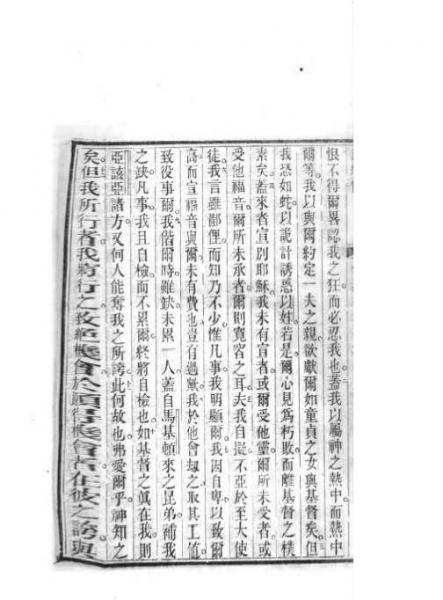 恨不得爾畧認我之狂而必忍我也蓋我以屬神之熱中而熱中
爾等我以與爾約定一夫之親欲獻爾如童貞之女與基督矣但
我恐如蛇以詭計誘惑以姓若是爾心見為朽敗而離基督之樸
素矣蓋來者宣別耶穌我未有宣者或爾受他靈爾所未受者或
受他福音爾所未承者爾則寬容之耳夫我自擬不亞於至大使
徒我言雖鄙俚而知乃不少惟凡事我明顯爾我因自卑以致爾
高而宣福音與爾未有費也豈有過厥我於他會刼之取其工值
致役事爾我偕爾時雖缺未累一人蓋自馬基頓來之昆弟補我
之缺凡事我且自檢而不累爾終將自檢也如基督之真在我則
亞該亞諸方又何人能奪我之所誇此何故也弗愛爾乎神知之
矣但我所行者我將行之致絕機會於願得機會者在彼之誇與